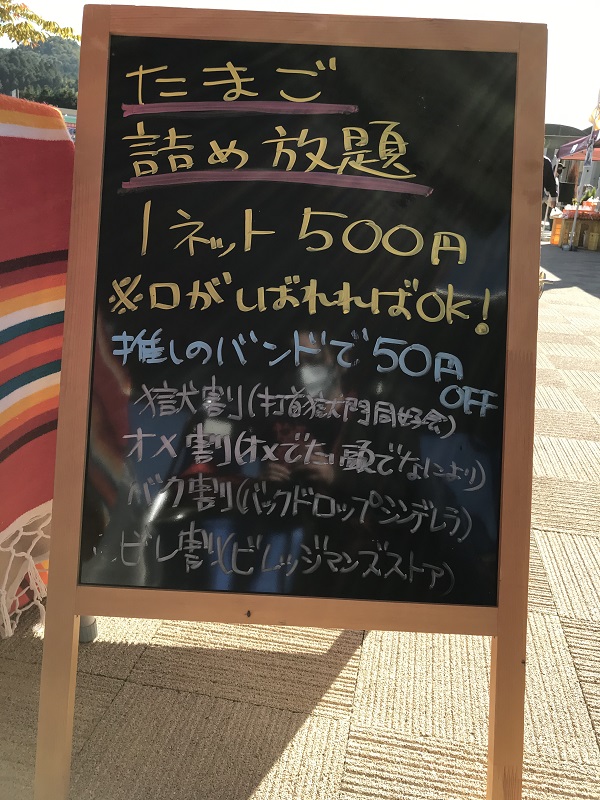 たまご
詰め放題
1ネット500円
※口がしばれればOK!
推しのバンドで50円
OFF
獄割(打首獄門同好会)
オメ割(オメでたい頭でなにより)
バク割(バックドロップシンデレラ)
ビレ割(ビレッジマンズストア)